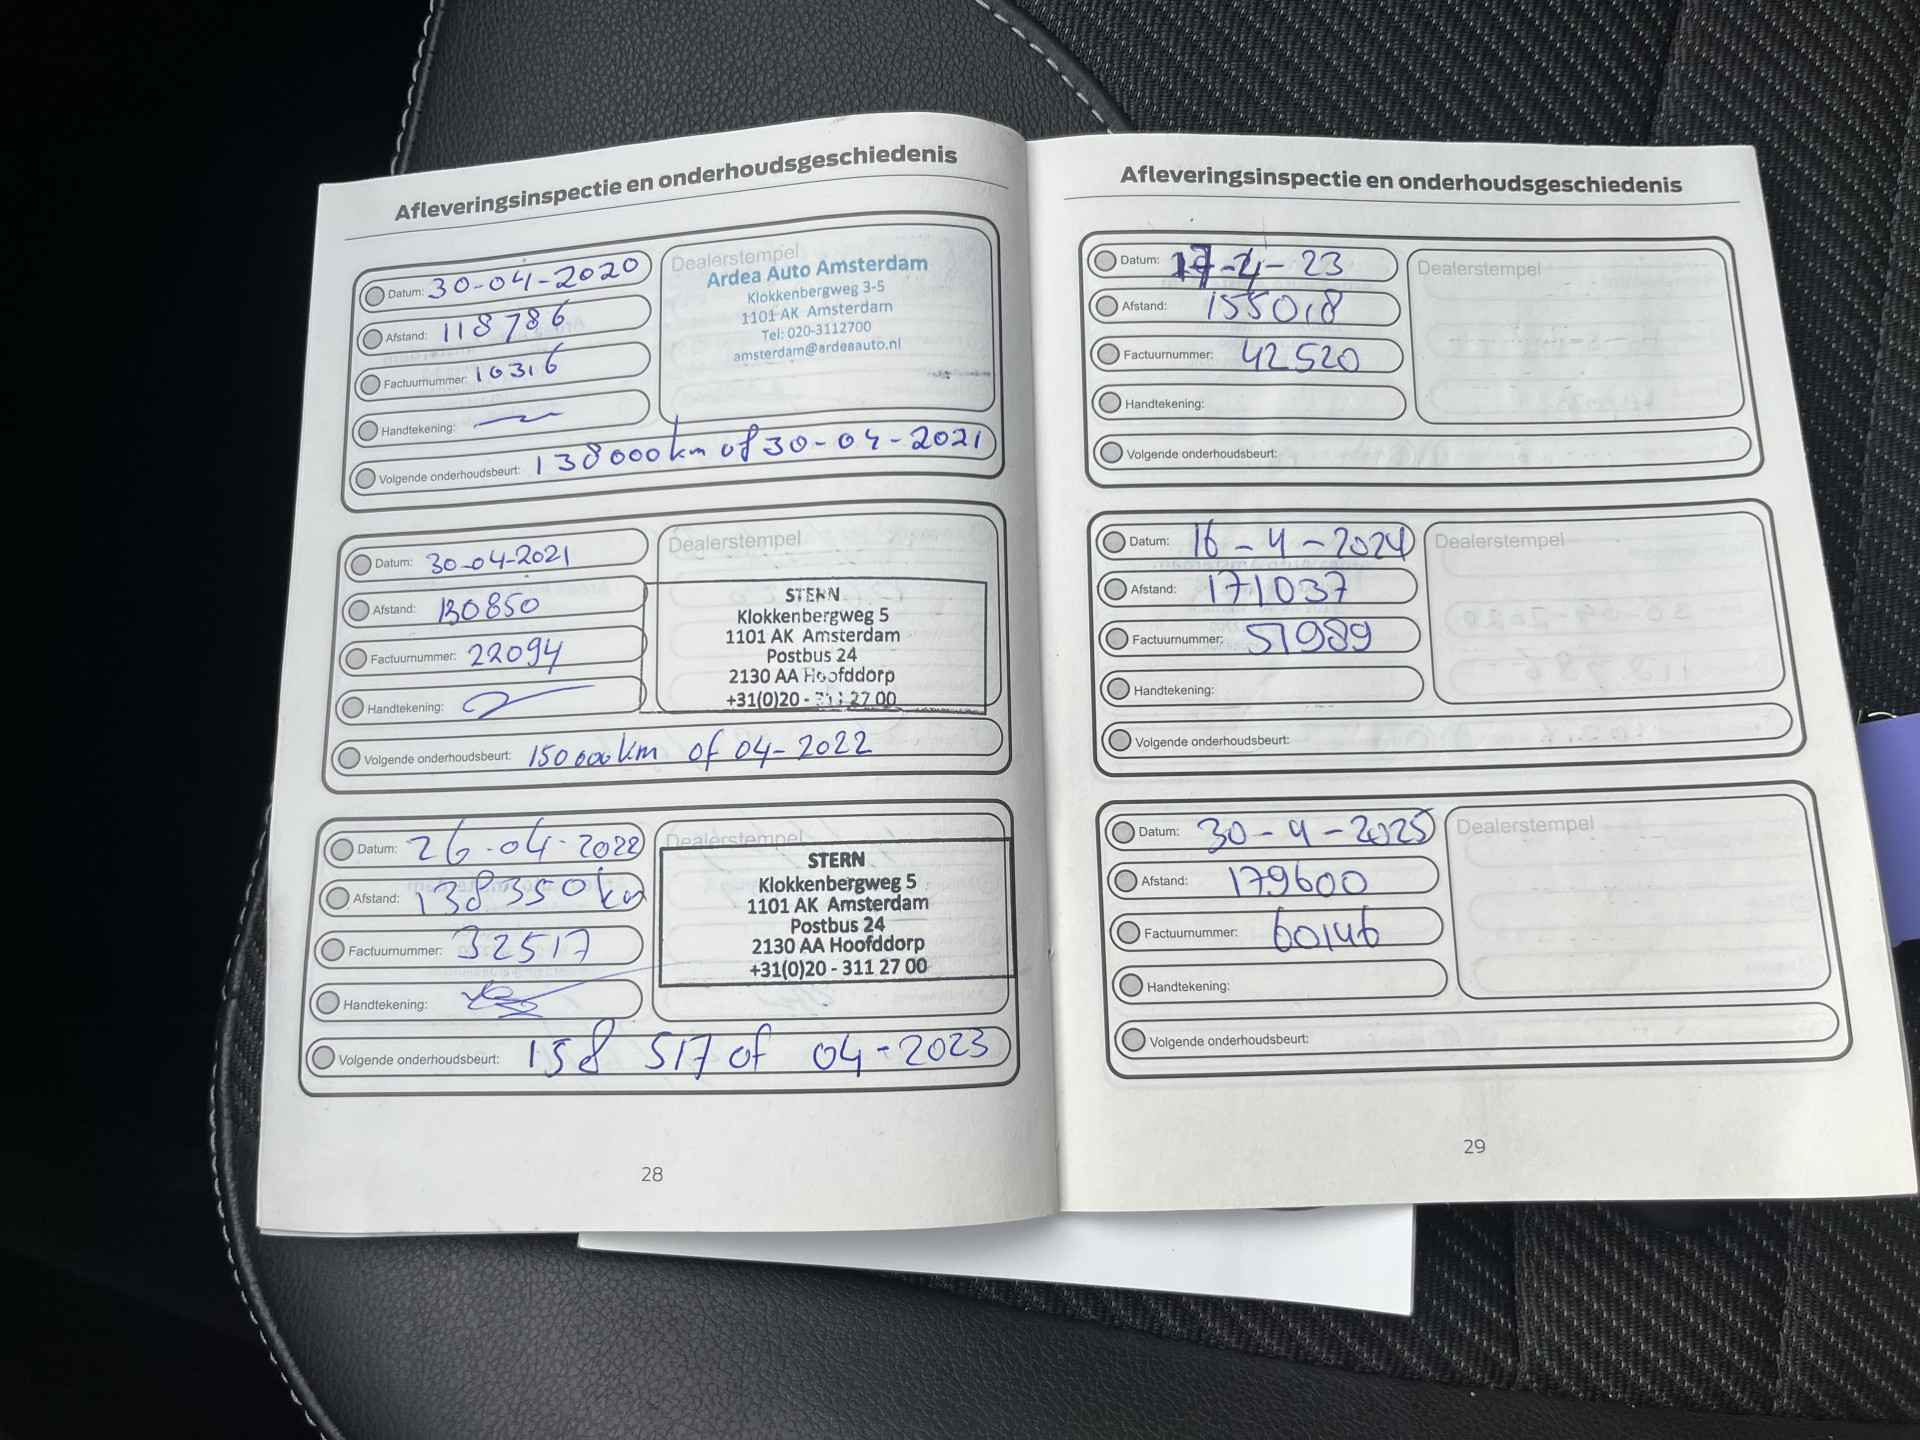 Afleveringsinspectie en onderhoudsgeschiedenis
Datum: 30-04-2020
Afstand: 118786
Factuurnummer: 10316
Handtekening:
Volgende onderhoudsbeurt: 138000km of 30-04-2021
Dealerstempel
Ardea Auto Amsterdam
Klokkenbergweg 3-5
1101 AK Amsterdam
Tel: 020-3112700
amsterdam@ardeaauto.nl
Datum: 30-04-2021
Afstand: 130850
Factuurnummer: 22094
Handtekening:
Volgende onderhoudsbeurt: 150000km of 04-2022
Dealerstempel
STERN
Klokkenbergweg 5
1101 AK Amsterdam
Postbus 24
2130 AA Hoofddorp
+31(0)20 - 311 27 00
Datum: 26-04-2022
Afstand: 138350km
Factuurnummer: 32517
Handtekening:
Volgende onderhoudsbeurt: 158 517 of 04-2023
Dealerstempel
STERN
Klokkenbergweg 5
1101 AK Amsterdam
Postbus 24
2130 AA Hoofddorp
+31(0)20 - 311 27 00
28
Afleveringsinspectie en onderhoudsgeschiedenis
Datum: 17-4-23
Afstand: 155018
Factuurnummer: 42520
Handtekening:
Volgende onderhoudsbeurt:
Dealerstempel
Datum: 16-4-2024
Afstand: 171037
Factuurnummer: 51989
Handtekening:
Volgende onderhoudsbeurt:
Dealerstempel
Datum: 30-4-2025
Afstand: 179600
Factuurnummer: 60146
Handtekening:
Volgende onderhoudsbeurt:
Dealerstempel
29